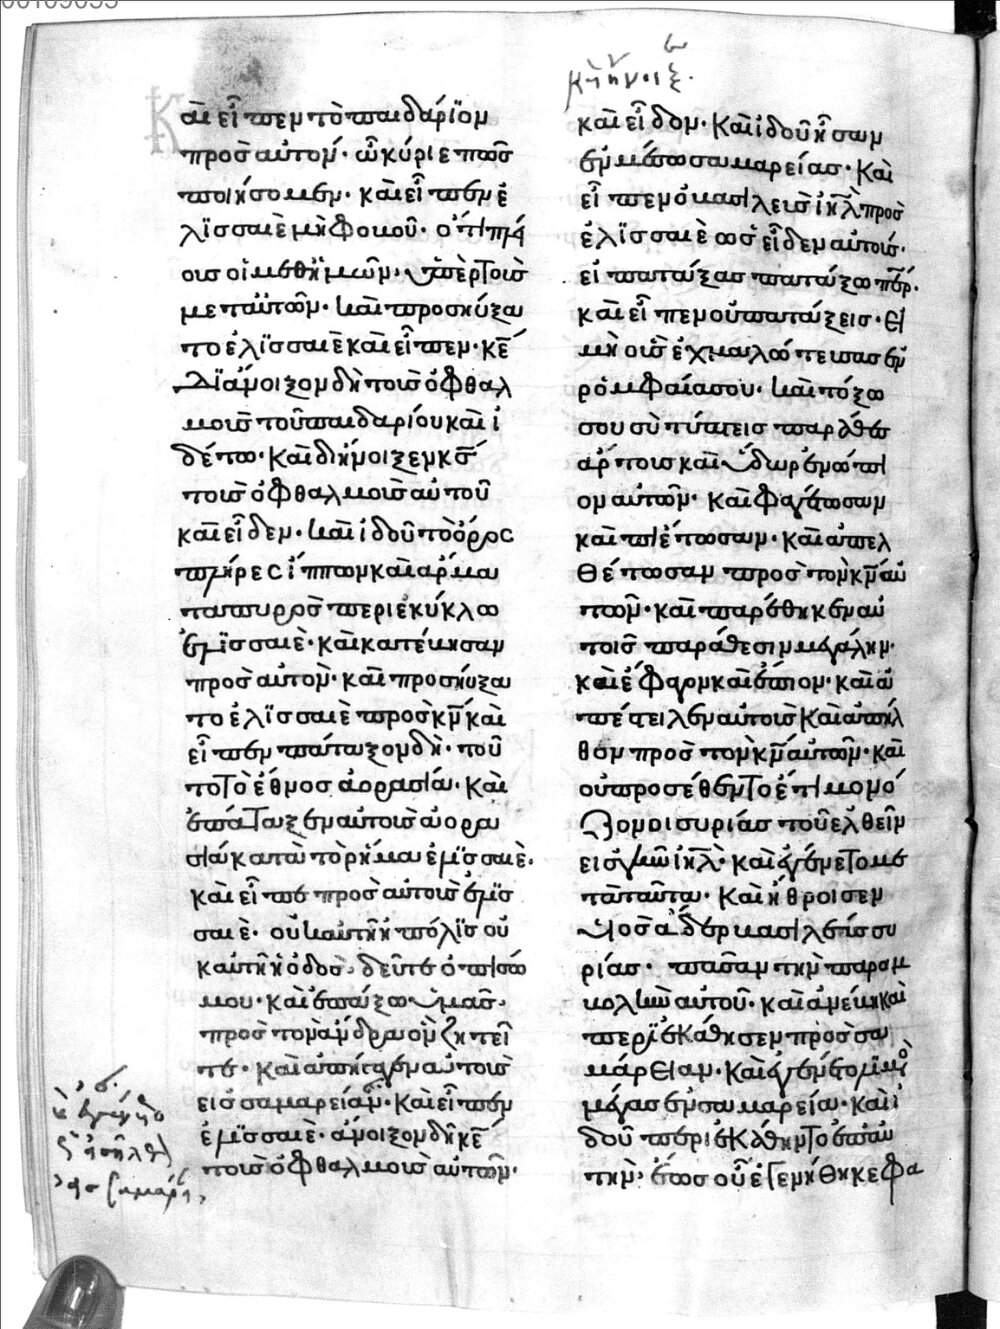 Καὶ εἶπεν τὸ παιδάριον
πρὸς αὐτόν· ὦ κύριε πῶς
ποιήσομεν· καὶ εἶπεν ἐ
λϊσσαιὲ μὴ φοβοῦ· ὅτι πλεί
ους οἱ μεθ' ἡμῶν, ὑπὲρ τοὺς
μετ' αὐτῶν· καὶ προσηύξατο
το ἐλϊσσαιὲ καὶ εἶπεν· κε
διάνοιξον δὴ τοὺς ὀφθαλ
μοὺς τοῦ παιδαρίου καὶ ἰ
δέτω· καὶ διήνοιξεν κς
τοὺς ὀφθαλμοὺς αὐτοῦ
καὶ εἶδεν· καὶ ἰδοῦ τὸ ὄρος
πλήρες ἵππων καὶ ἅρμα
τα πυρρὸς περιεκύκλω
ἐλϊσσαιὲ· καὶ κατέβησαν
πρὸς αὐτὸν· καὶ προσηύξα
το ἐλϊσσαιὲ πρὸς κν καὶ
εἶπεν πάταξον δὴ· τοῦ
το τὸ ἔθνος ἀορασία· καὶ
ἐπάταξεν αὐτοὺς ἀορα
σία κατὰ τὸ ρῆμα ἐλϊσσαιὲ·
καὶ εἶπε πρὸς αὐτοὺς ἐλϊσ
σαιὲ· οὐχ αὕτη ἡ πόλϊς οὐ
χ αὕτη ἡ ὁδὸς· δεῦτε ὀπίσω
μου· καὶ ἀπάξω ὑμᾶς·
πρὸς τὸν ἄνδρα ὃν ζητεῖ
τε· καὶ ἀπήγαγεν αὐτοὺς
εἰς σαμαρείαν· Καὶ εἶπεν
ἐλϊσσαιὲ· ἄνοιξον δὴ κε
τοὺς ὀφθαλμοὺς αὐτῶν·
καὶ εἶδον· Καὶ ἰδοῦ ἦσαν
ἐν μέσω σαμαρείας· Καὶ
εἶπεν ὁ βασιλεὺς ιηλ πρὸς
ἐλϊσσαιὲ ὡς εἶδεν αὐτούς·
εἰ πατάξας πατάξω περ·
καὶ εἶπεν οὐ πατάξεις· εἰ
μὴ οὓς ἐχμαλώτευσας ἐν
ρομφαία σου· καὶ τόξω
σου σὺ τύπτεις παράθες
ἄρτους καὶ ὕδωρ ἐνώπι
ον αὐτῶν· καὶ φαγέτωσαν
καὶ πιέτωσαν· καὶ ἀπελ
θέτωσαν πρὸς τὸν κν αὐ
τῶν· καὶ παρέθηκεν αὐ
τοῖς παράθεσιν μεγάλην·
καὶ ἔφαγον καὶ ἔπιον· καὶ ἀ
πέστειλεν αὐτοὺς καὶ ἀπῆλ
θον πρὸς τὸν κν αὐτῶν· καὶ
οὐ προσέθεντο ἔτι μονό
ζονοι συρίας τοῦ ἐλθεῖν
εἰς γῆν ιηλ· καὶ ἐγένετο με
τὰ ταῦτα· Καὶ ἤθροισεν
υἱὸς ἄδερ βασιλεὺς συ
ρίας· πᾶσαν τὴν παρεμ
βολὴν αὐτοῦ· καὶ ἀνέβη καὶ
περιεκάθησεν πρὸς σα
μάρειαν· Καὶ ἐγένετο λϊμὸ
μέγας ἐν σαμαρεία· καὶ ἰ
δοῦ περιεκάθηντο ἐπ' αὐ
τὴν· ἕως οὗ ἐγενήθη κεφα